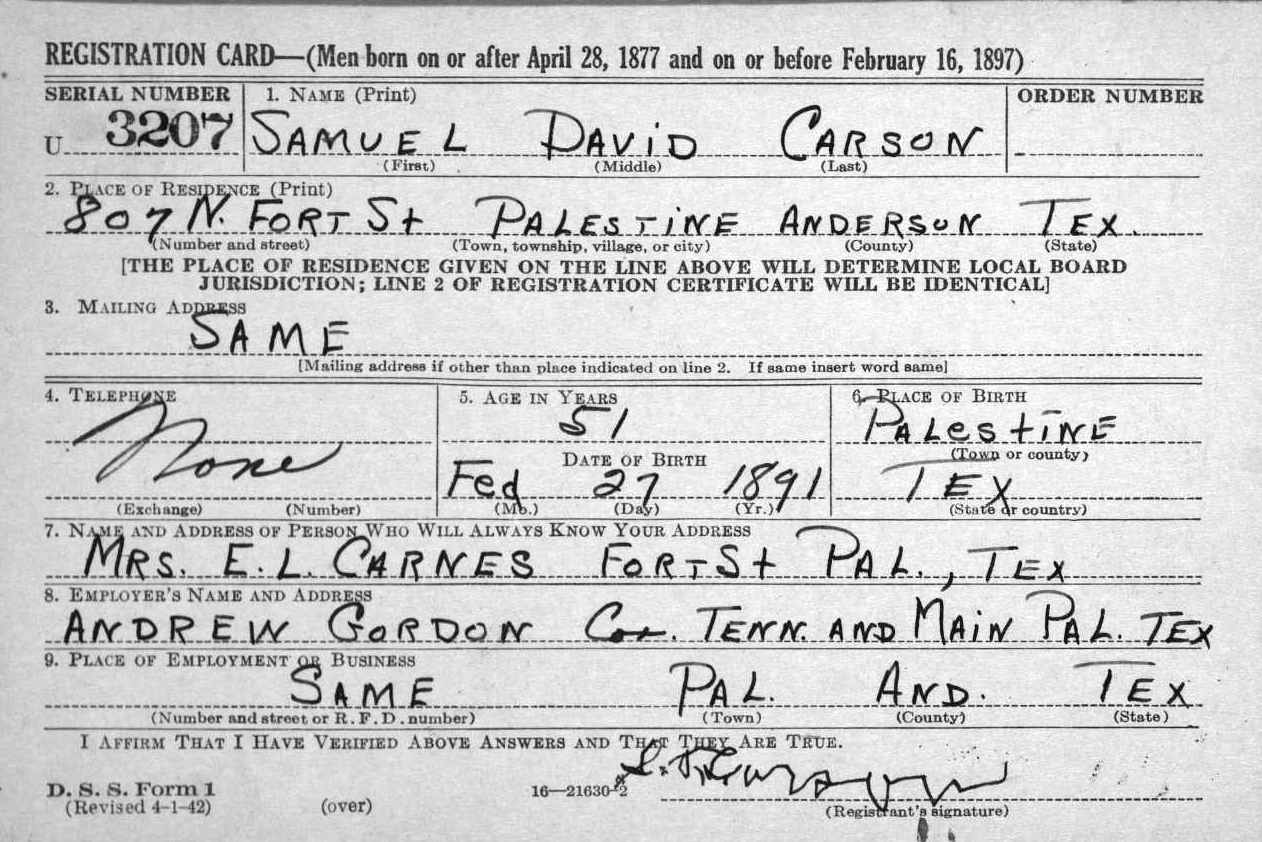 REGISTRATION CARD—(Men born on or after April 28, 1877 and on or before February 16, 1897)
SERIAL NUMBER 1. NAME (Print) ORDER NUMBER
U 3207 SAMUEL DAVID CARSON
(First) (Middle) (Last)
2. PLACE OF RESIDENCE (Print)
807 N. FORT St PALESTINE ANDERSON TEX.
(Number and street) (Town, township, village, or city) (County) (State)
[THE PLACE OF RESIDENCE GIVEN ON THE LINE ABOVE WILL DETERMINE LOCAL BOARD
JURISDICTION; LINE 2 OF REGISTRATION CERTIFICATE WILL BE IDENTICAL]
3. MAILING ADDRESS
SAME
[Mailing address if other than place indicated on line 2. If same insert word same]
4. TELEPHONE 5. AGE IN YEARS 6. PLACE OF BIRTH
51 PALesTINE
DATE OF BIRTH (Town or county)
None Fed 27 1891 TEX
(Exchange) (Number) (Mo.) (Day) (Yr.) (State or country)
7. NAME AND ADDRESS OF PERSON WHO WILL ALWAYS KNOW YOUR ADDRESS
MRS. E.L. CARNES FORT St PAL., TEX
8. EMPLOYER'S NAME AND ADDRESS
ANDREW GORDON Cor. TENN. AND MAIN PAL. TEX
9. PLACE OF EMPLOYMENT OR BUSINESS
SAME PAL. AND. TEX
(Number and street or R. F. D. number) (Town) (County) (State)
I AFFIRM THAT I HAVE VERIFIED ABOVE ANSWERS AND THAT THEY ARE TRUE.
D. S. S. Form 1 16—21630-2
(Revised 4-1-42) (over) (Registrant's signature)